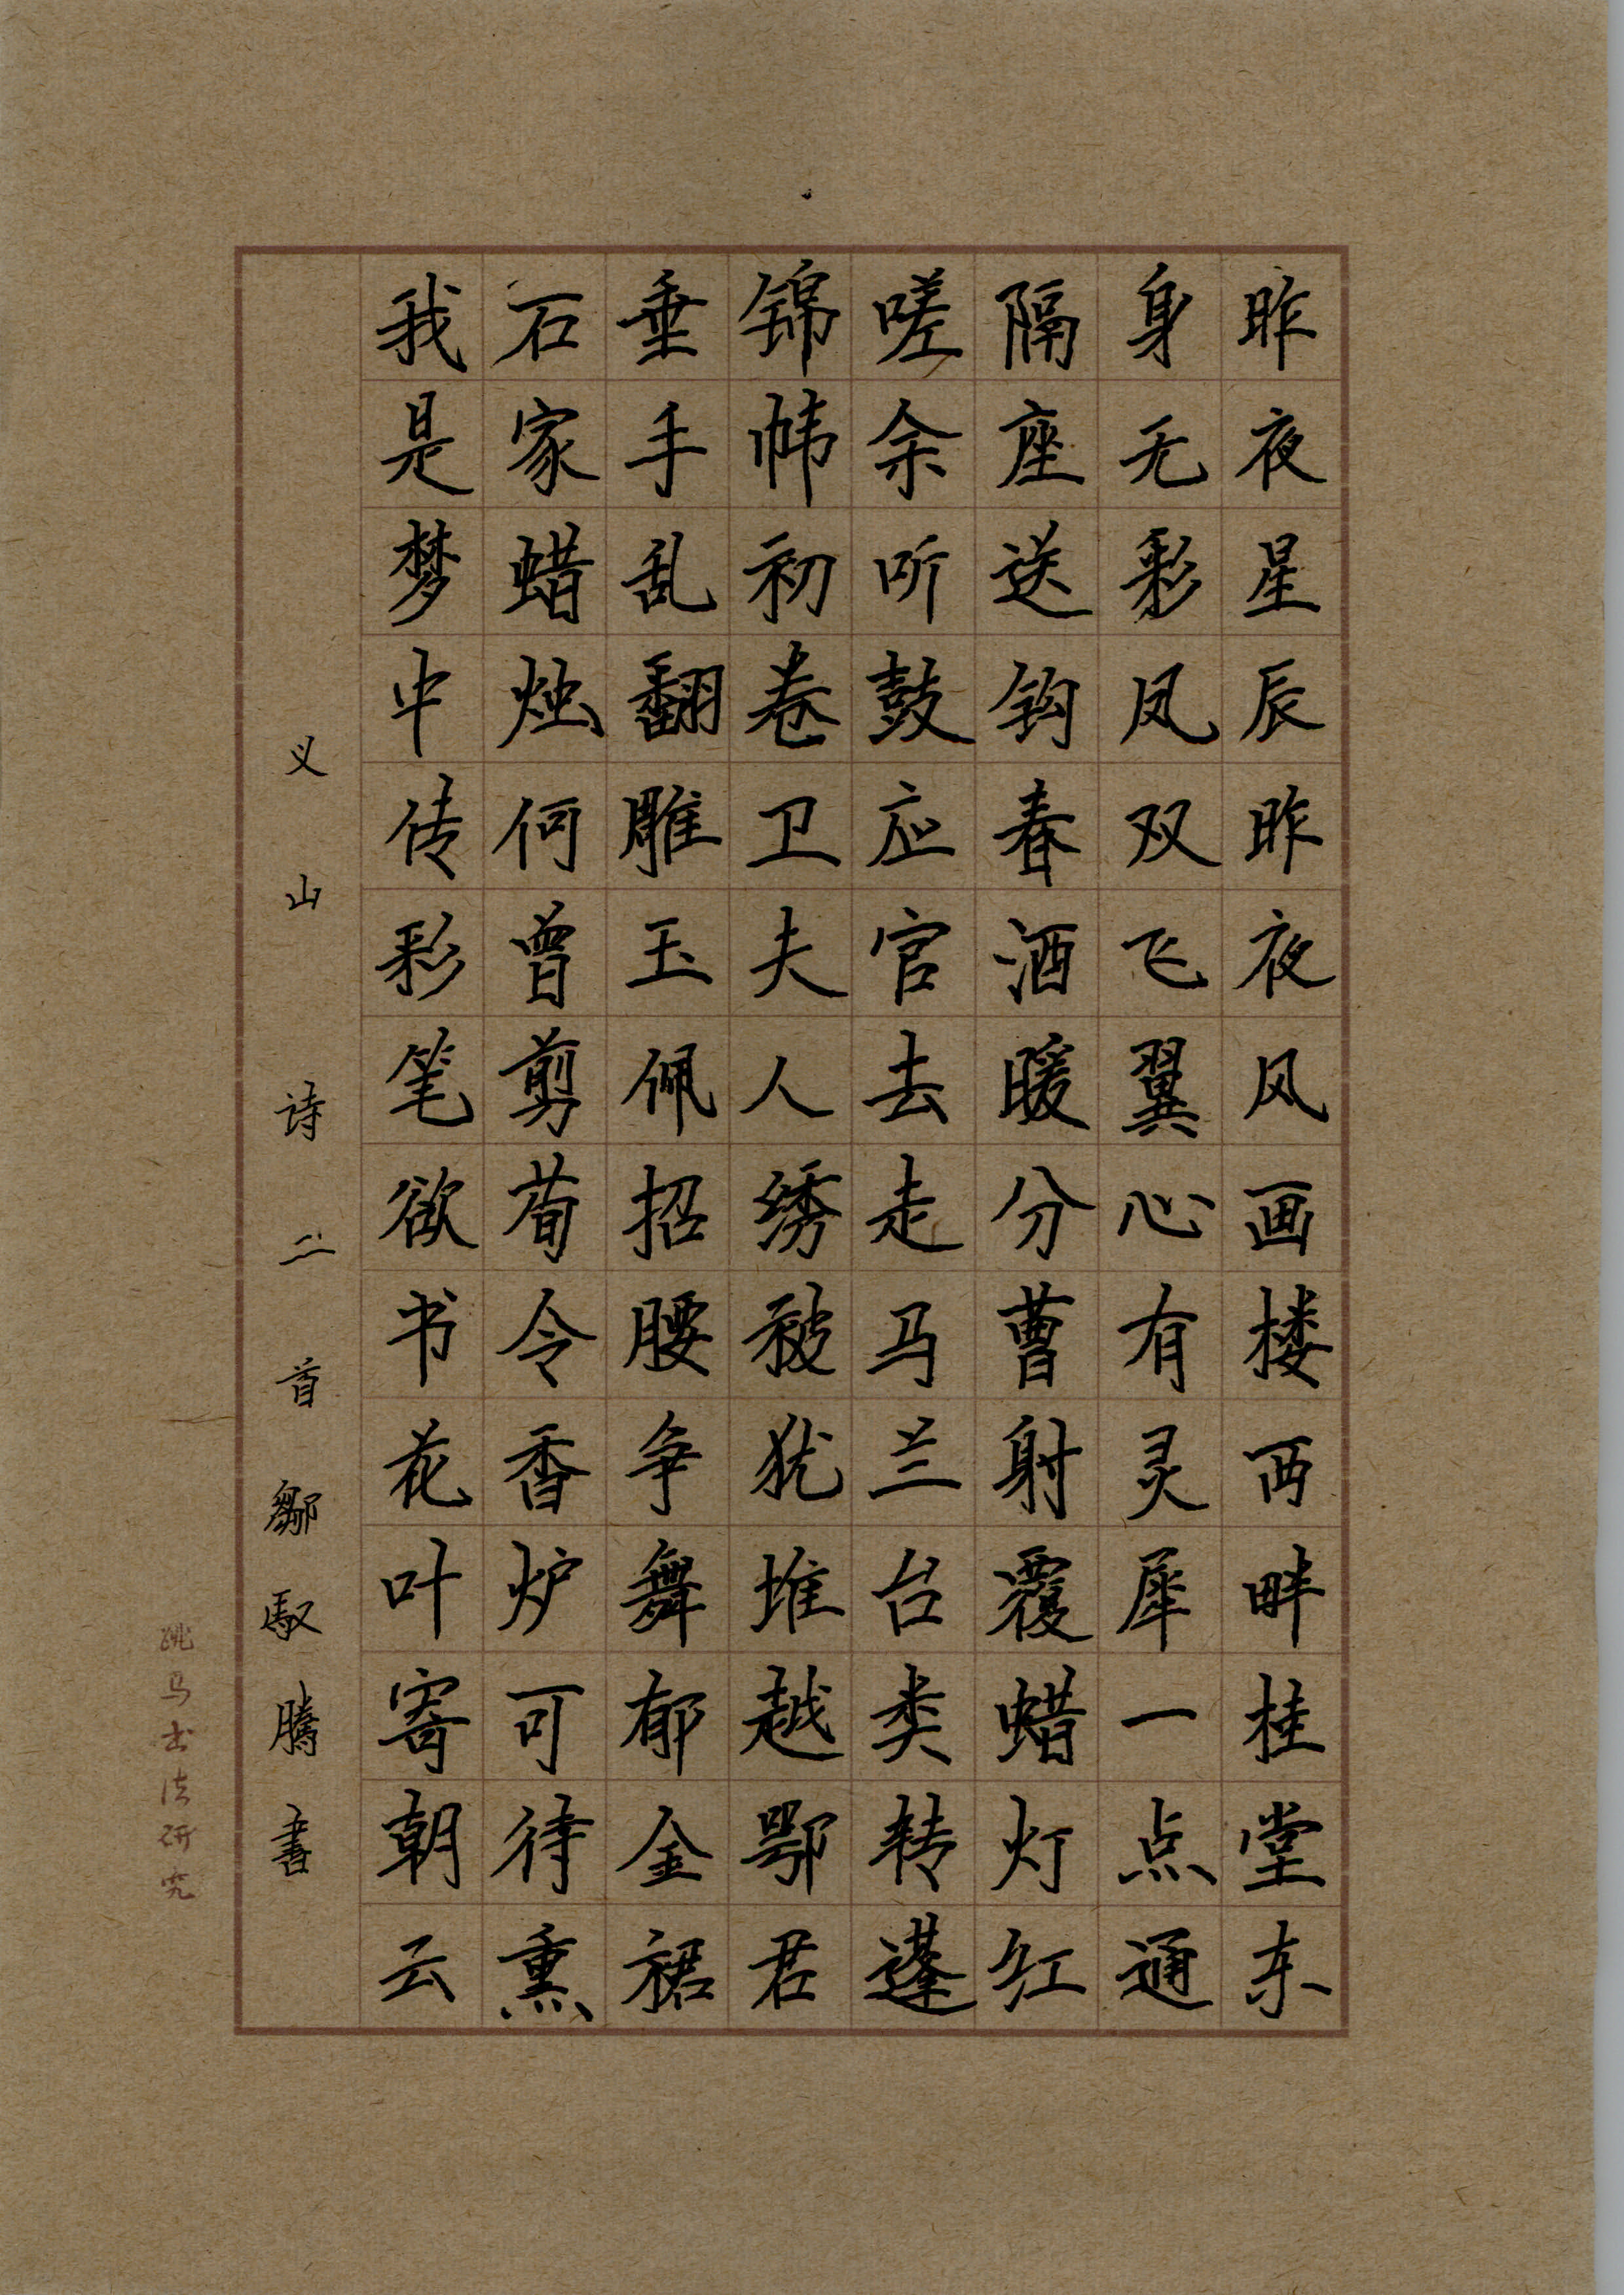 昨夜星辰昨夜风画楼西畔桂堂东
身无彩凤双飞翼心有灵犀一点通
隔座送钩春酒暖分曹射覆蜡灯红
嗟余听鼓应官去走马兰台类转蓬
锦帏初卷卫夫人绣被犹堆越鄂君
垂手乱翻雕玉佩招腰争舞郁金裙
石家蜡烛何曾剪荀令香炉可待熏
我是梦中传彩笔欲书花叶寄朝云
义山诗二首鄒馭騰書
跳马书法研究